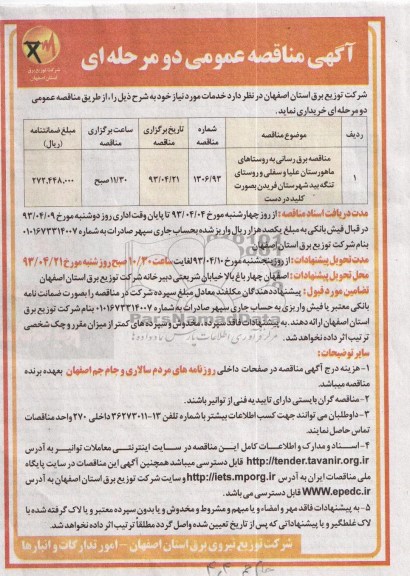 آگهی مناقصه عمومی دو مرحله ای
شرکت توزیع برق
استان اصفهان
شرکت توزیع برق استان اصفهان در نظر دارد خدمات مورد نیاز خود به شرح ذیل را، از طریق مناقصه عمومی
دو مرحله ای خریداری نماید.
ردیف موضوع مناقصه شماره مناقصه تاریخ برگزاری مناقصه ساعت برگزاری مناقصه مبلغ ضمانتنامه (ریال)
۱ مناقصه برق رسانی به روستاهای ماهورستان علیا و سفلی و روستای تنگه بید شهرستان فریدن بصورت کلید در دست ۱۳۰۶/۹۳ ۹۳/۰۴/۲۱ ۱۱/۳۰ صبح ۲۷۲,۴۴۸,۰۰۰
مدت دریافت اسناد مناقصه : از روز چهارشنبه مورخ ۹۳/۰۴/۰۴ تا پایان وقت اداری روز دوشنبه مورخ ۹۳/۰۴/۰۹
در قبال فیش بانکی به مبلغ یکصد هزار ریال واریز شده بحساب جاری سپهر صادرات به شماره ۰۱۰۱۶۷۳۳۱۴۰۰۷
بنام شرکت توزیع برق استان اصفهان
مدت تحویل پیشنهادات : از روز پنجشنبه مورخ ۹۳/۰۴/۱۰ لغایت ساعت ۱۰/۳۰ صبح روز شنبه مورخ ۹۳/۰۴/۲۱
محل تحویل پیشنهادات : اصفهان چهارباغ بالا خیابان شریعتی دبیرخانه شرکت توزیع برق استان اصفهان
تضامین مورد قبول : پیشنهاد دهندگان مکلفند معادل مبلغ سپرده شرکت در مناقصه را بصورت ضمانت نامه
بانکی معتبر یا فیش واریزی به حساب جاری سپهر صادرات به شماره ۰۱۰۱۶۷۳۳۱۴۰۰۷ بنام شرکت توزیع برق
استان اصفهان ارائه دهند. به پیشنهادات فاقد سپرده، مخدوش و سپرده های کمتر از میزان مقرر و چک شخصی
ترتیب اثر داده نخواهد شد.
سایر توضیحات :
۱- هزینه درج آگهی مناقصه در صفحات داخلی روزنامه های مردم سالاری و جام جم اصفهان بعهده برنده
مناقصه میباشد.
۲- مناقصه گران بایستی دارای تاییدیه فنی از توانیر باشند.
۳- داوطلبان می توانند جهت کسب اطلاعات بیشتر با شماره تلفن ۱۳-۳۶۲۷۳۰۱۱ داخلی ۲۷۰ واحد مناقصات
تماس حاصل نمایند.
۴- اسناد و مدارک و اطلاعات کامل این مناقصه در سایت اینترنتی معاملات توانیر به آدرس
http://tender.tavanir.org.ir قابل دسترسی میباشد همچنین آگهی این مناقصات در سایت پایگاه
ملی مناقصات ایران به آدرس http://iets.mporg.ir و سایت شرکت توزیع برق استان اصفهان به آدرس
WWW.epedc.ir قابل دسترسی می باشد.
۵- به پیشنهادات فاقد مهر و امضاء و یا مبهم و مشروط و مخدوش و یا بدون سپرده معتبر و یا لاک گرفته شده با
لاک غلطگیر و یا پیشنهاداتی که پس از تاریخ تعیین شده واصل گردد مطلقاً ترتیب اثر داده نخواهد شد.
شرکت توزیع نیروی برق استان اصفهان - امور تدارکات و انبارها